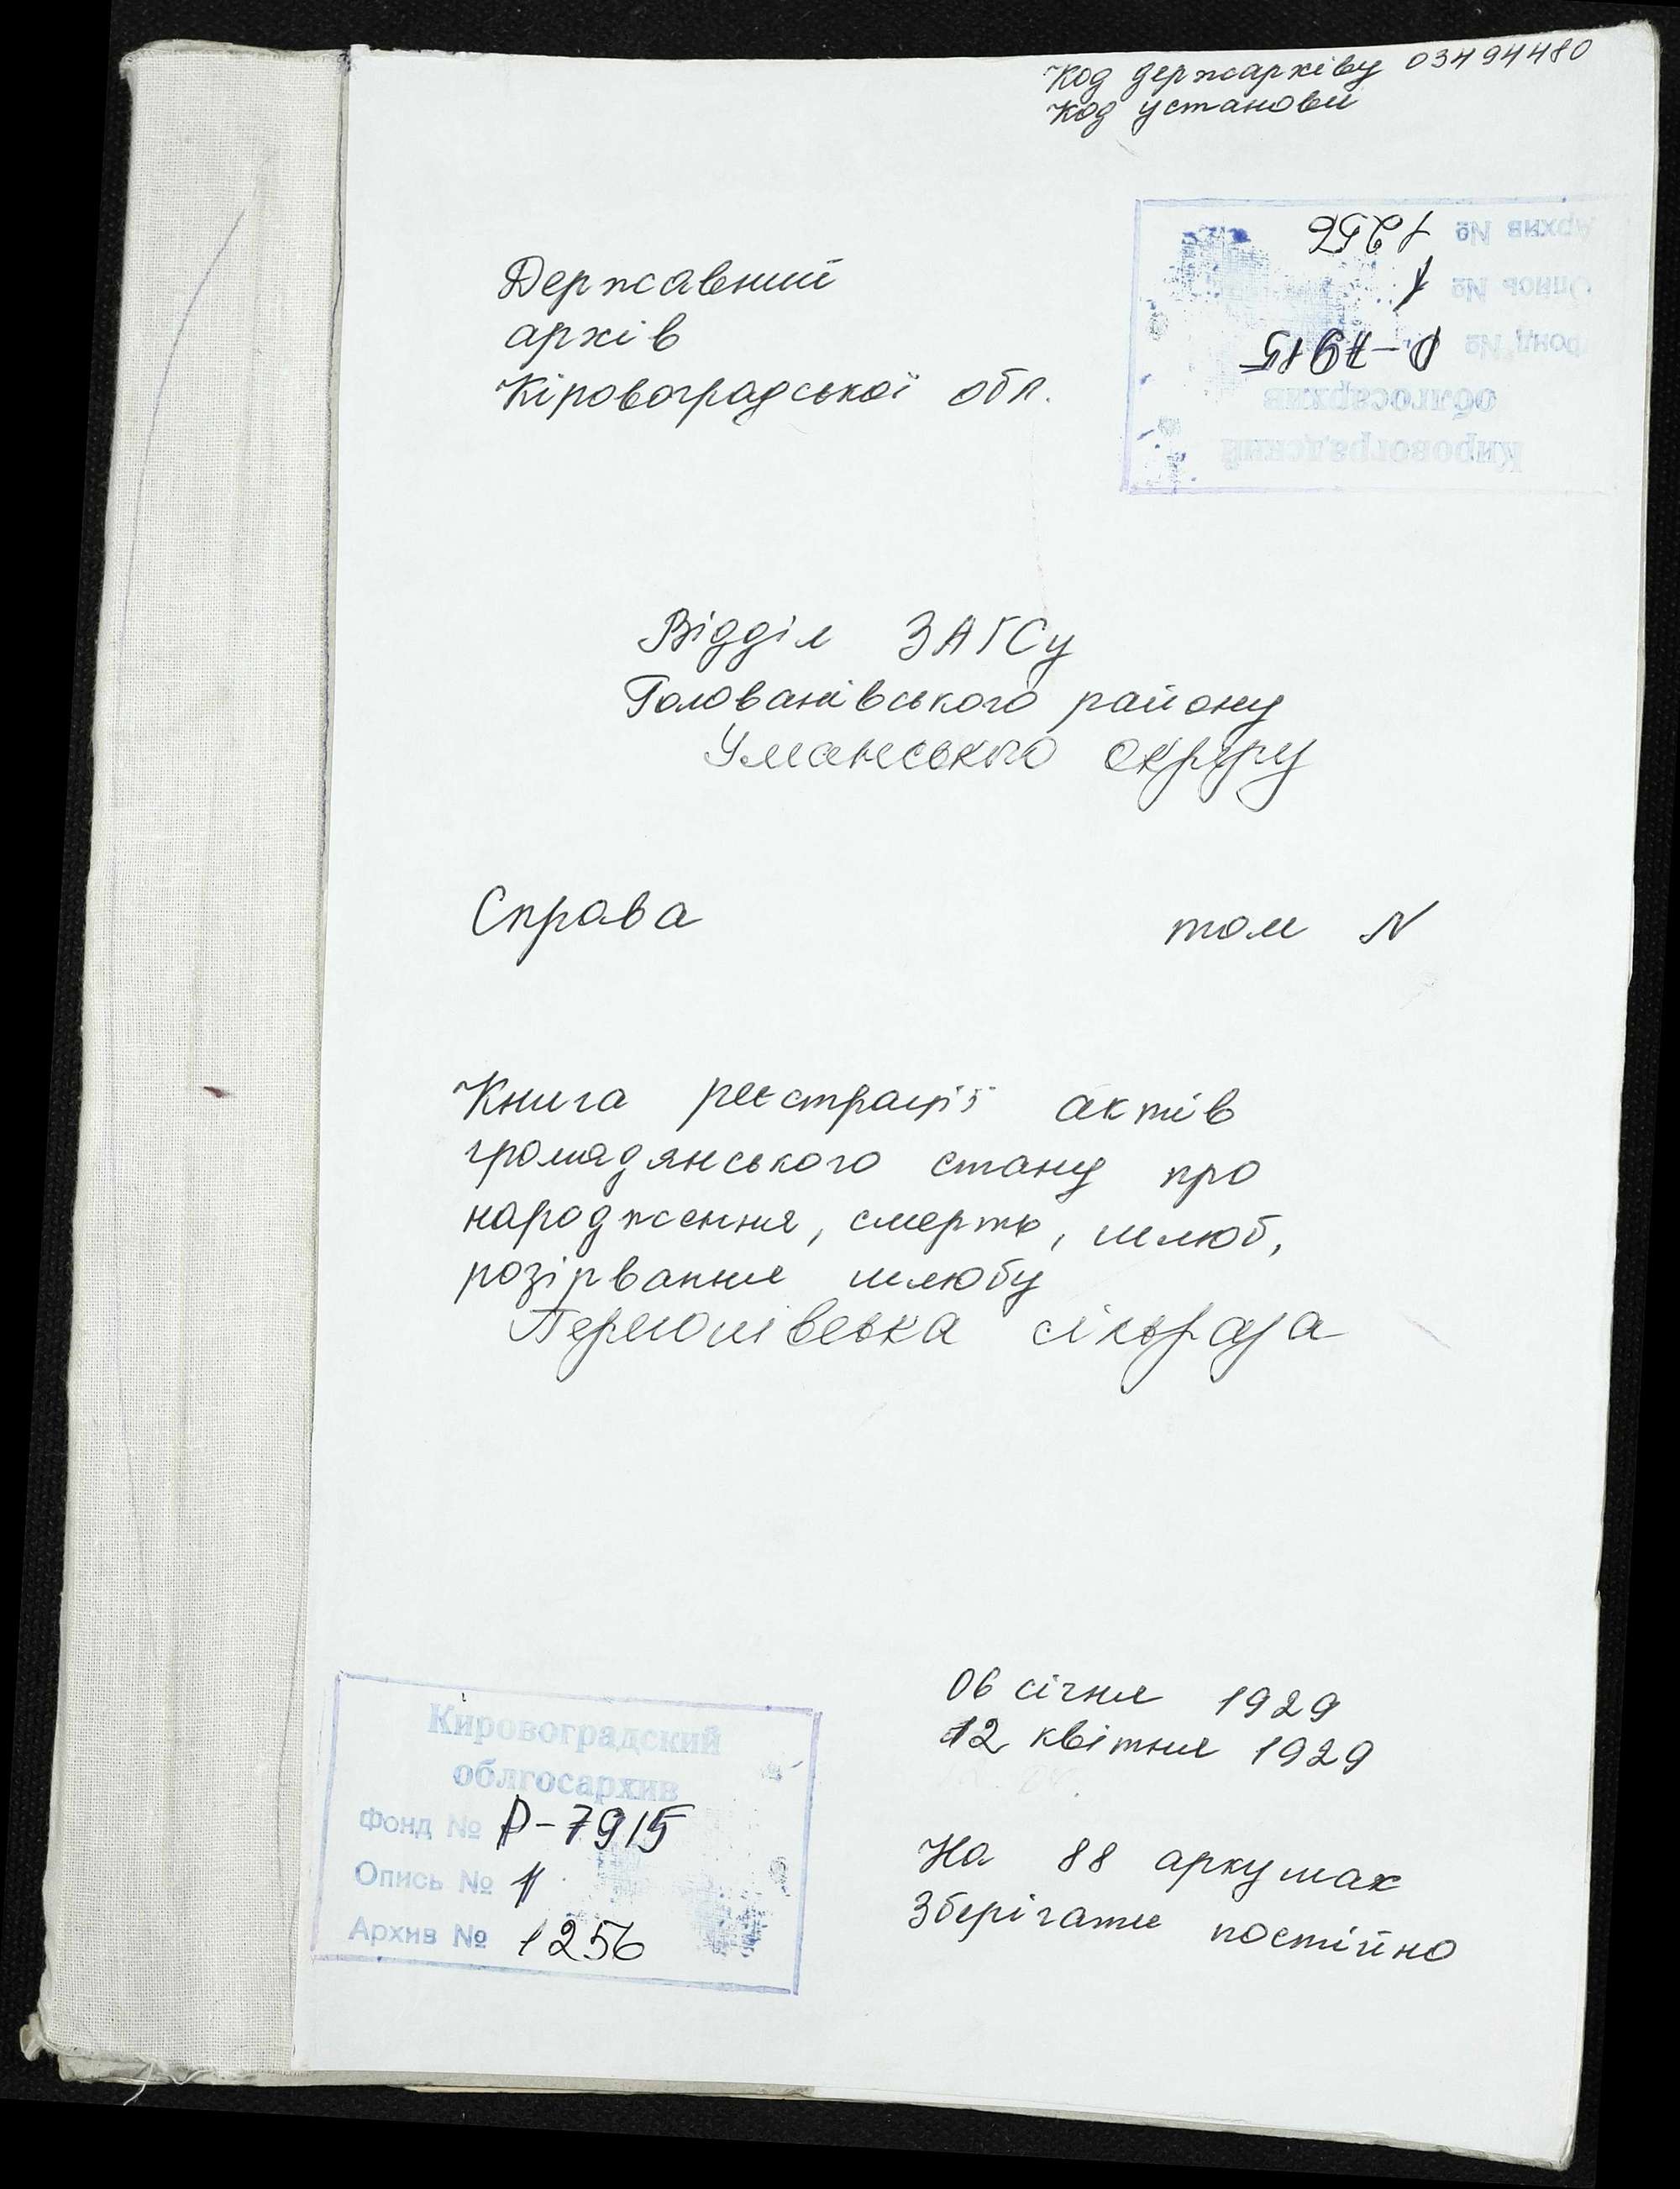 Код держархіву 03494480
Код установи
Архив № 1256
Опись № 1
Фонд № Р-7915
облгосархив
Кировоградский
Державний
архів
Кіровоградської обл.
Відділ ЗАГСу
Голованівського району
Уманського округу
Справа том N
Книга реєстрації актів
громадянського стану про
народження, смерть, шлюб,
розірвання шлюбу
сільрада
06 січня 1929
12 квітня 1929
На 88 аркушах
Зберігати постійно
Кировоградский
облгосархив
Фонд № Р-7915
Опись № 1
Архив № 1256